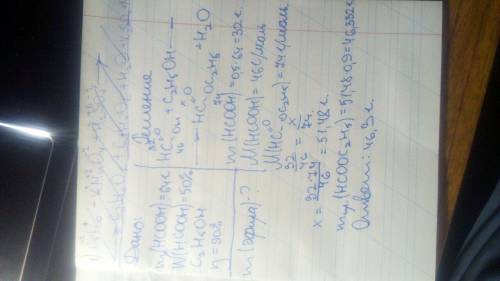 Дано:
m(HCOOH)=64г
W(HCOOH)=50%
C₂H₅OH
η=90%
m(эфира)-?
Решение
32 x
HC=O OH + C₂H₅OH →
46 74
→ HC=O OC₂H₅ + H₂O
m(HCOOH)=0,5·64=32г
M(HCOOH)=46г/моль
M(HC=O OC₂H₅)=74г/моль
32/46 = x/74
x = 32·74/46 = 51,48г.
mпр(HCOOC₂H₅)=51,48·0,9=46,332г
Ответ: 46,3г.